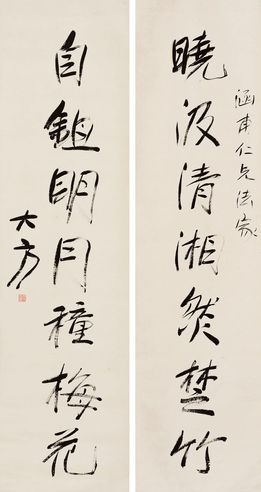 涵甫仁兄法家
曉汲清湘然楚竹
自鉏明月種梅花
大方